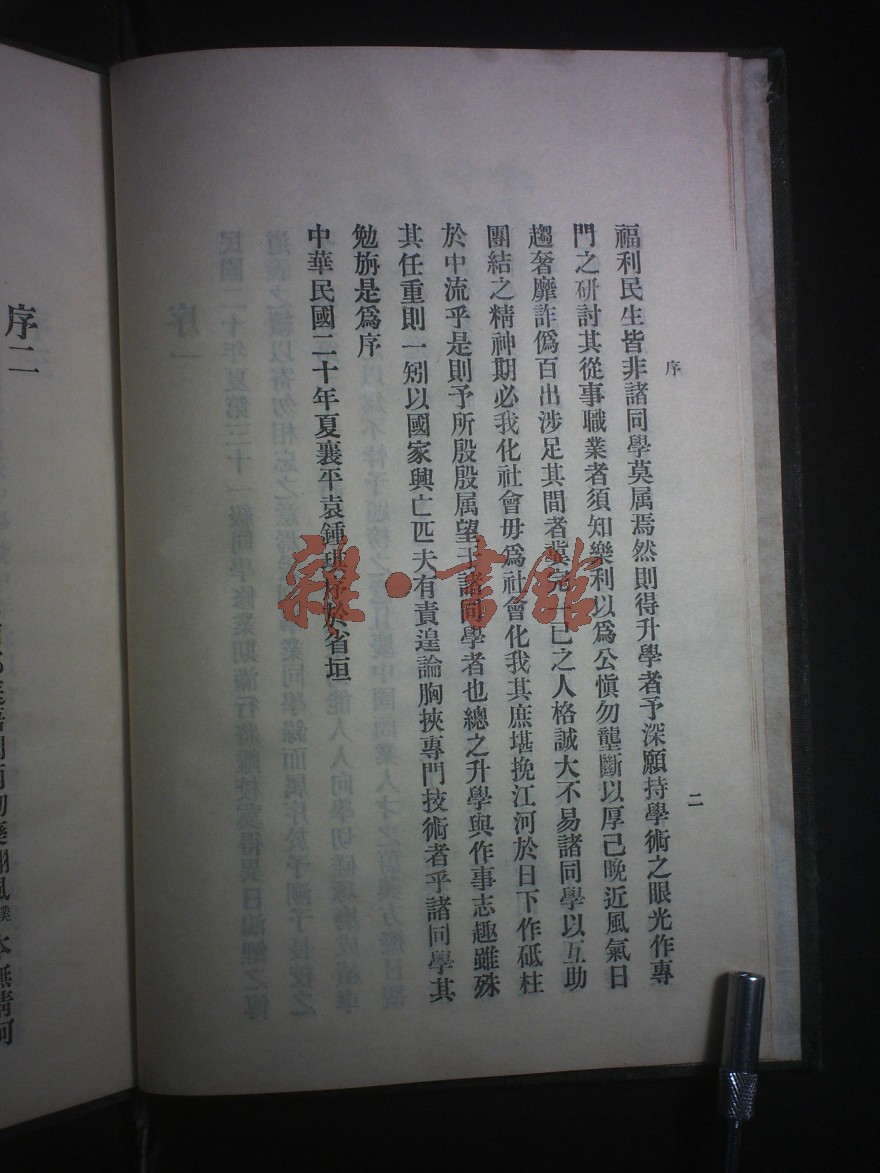 序
二
福利民生皆非諸同學莫属焉然則得升學者予深願持學術之眼光作專
門之研討其從事職業者須知樂利以爲公愼勿壟斷以厚己晚近風氣日
趨奢靡詐僞百出涉足其間者冀完一己之人格誠大不易諸同學以互助
團結之精神期必我化社會毋爲社會化我其庶堪挽江河於日下作砥柱
於中流乎是則予所殷殷属望于諸同學者也總之升學與作事志趣雖殊
其任重則一矧以國家興亡匹夫有責遑論胸挾專門技術者乎諸同學其
勉旃是爲序
中華民國二十年夏襄平袁鍾琪序於省垣
雜·書館
序二